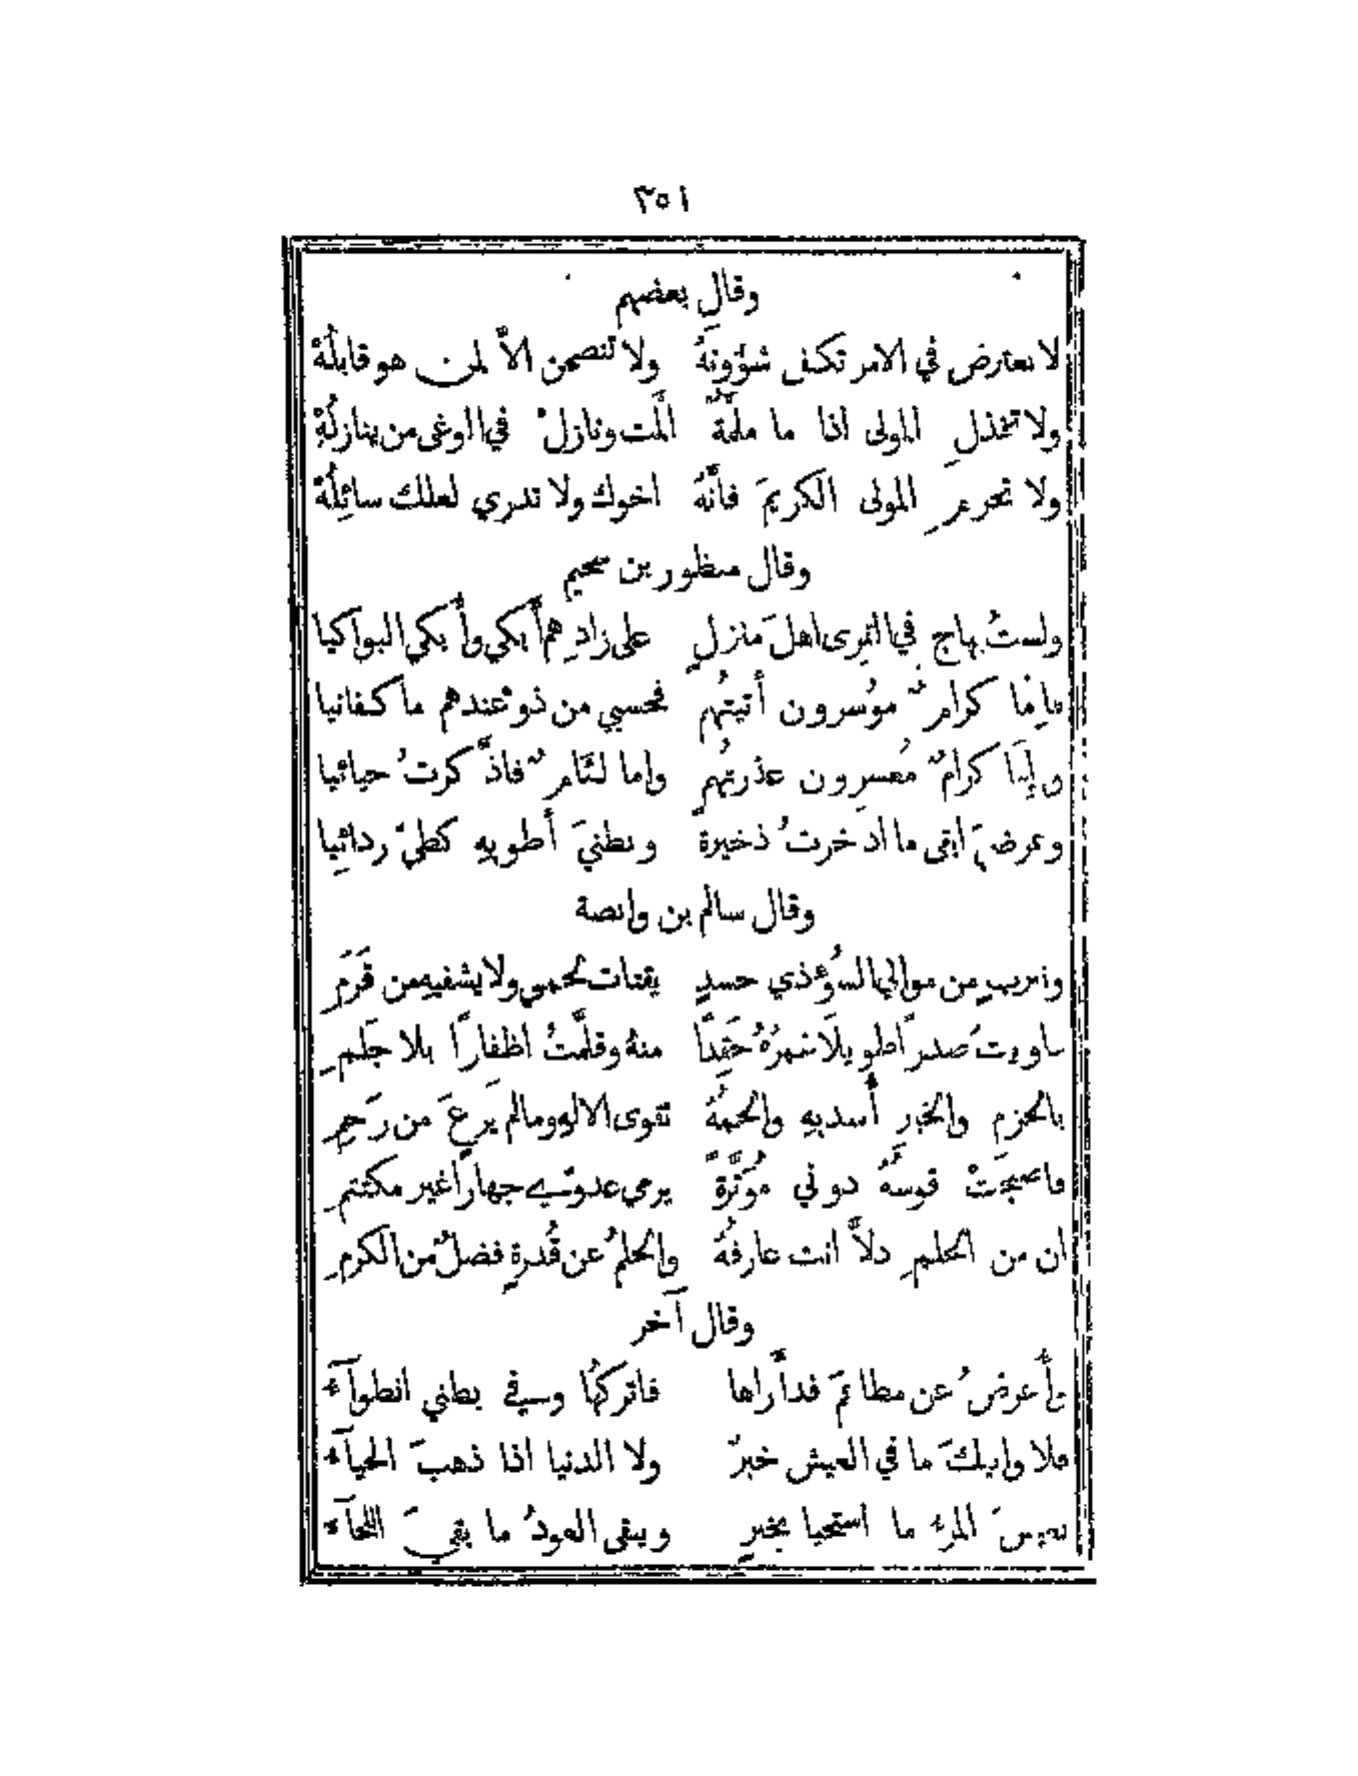 ٣٥١
وقال بعضهم
لا تعترض في الامر تكف شؤونهُ ولا تنصحن الاَّ لمن هو قابلُهْ
ولا تخذلِ المولى اذا ما ملمَّةٌ المَّت ونازلْ في الوغى من ينازلُهْ
ولا تحرمِ المولى الكريمَ فانَّهُ اخوك ولا تدري لعلك سائِلُهْ
وقال منظور بن سحيم
ولستُ بهاجٍ في القرى اهلَ منزلٍ على زادِهم أَبكي وأُبكي البواكيا
فإِمَّا كرامٌ موُسرون أَتيتُهم فحسبي من ذو عندهم ما كفانيا
وإِمَّا كرامٌ مُعسِرون عذرتُهم واما لئامٌ فاذَّكرتُ حيائيا
وعرضيَ ابقى ما ادَّخرتُ ذخيرةً وبطنيَ أَطويهِ كطيّ ردائِيا
وقال سالم بن وابصة
ونيربٍ من موالي السُّوءِ ذي حسدٍ يقتات لحمي ولا يشفيهِ من قَرَمِ
داويتُ صدرًا طويلًا غمرُهُ حَقِدًا منهُ وقلَّمتُ اظفارًا بلا جَلَمِ
بالحزمِ والخيرِ أُسديهِ والحمُهُ تقوى الالهِ وما لم يَرعَ من رَحِمِ
فاصبحَتْ قوسُهُ دوني مُوَتَّرةً يرمي عدوّي جهارًا غير مكتتمِ
ان من الحلمِ ذلاًّ انت عارفُهُ والحلمُ عن قُدرةٍ فضلٌ من الكرمِ
وقال آخر
وأُعرضُ عن مطاعمَ قد أَراها فاتركُها وفي بطني انطوآءُ
فلا وابيكَ ما في العيش خيرٌ ولا الدنيا اذا ذهبَ الحيآءُ
يعيشُ المرءُ ما استحيا بخيرٍ ويبقى العودُ ما بقيَ اللحآءُ